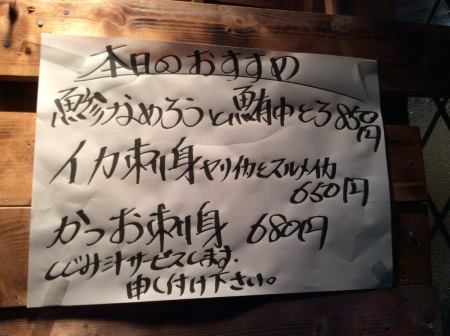 本日のおすすめ
鯵なめろうと鮪中とろ850円
イカ刺身ヤリイカとスルメイカ
650円
かつお刺身 680円
しじみ汁サービスします。
申し付け下さい。